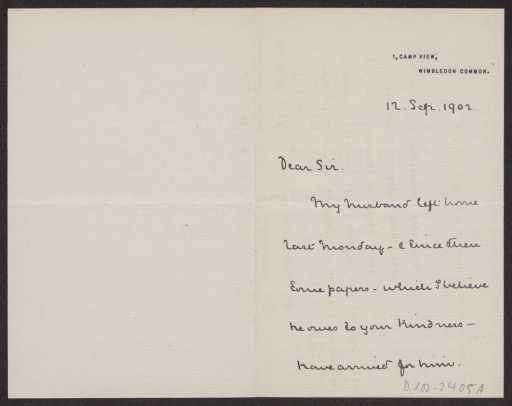 1, CAMP VIEW,
WIMBLEDON COMMON.
12. Sep. 1902
Dear Sir.
My husband left home
last Monday - & since then
some papers - which I believe
he owes to your kindness -
have arrived for him.
D102-2405A